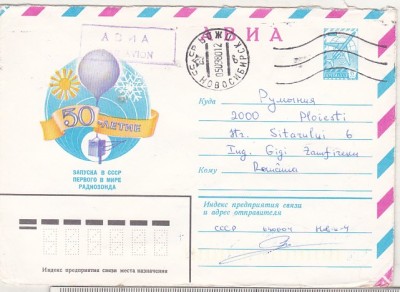 АВИА
АВИА
СССР НОЖ
НОВОСИБИРСК
50-ЛЕТИЕ
ЗАПУСКА В СССР
ПЕРВОГО В МИРЕ
РАДИОЗОНДА
Куда Румыния
2000 Ploiesti
Str. Sitarului 6
Ing. Gigi Zamfirescu
Кому România
Индекс предприятия связи
и адрес отправителя
СССР
Индекс предприятия связи места назначения